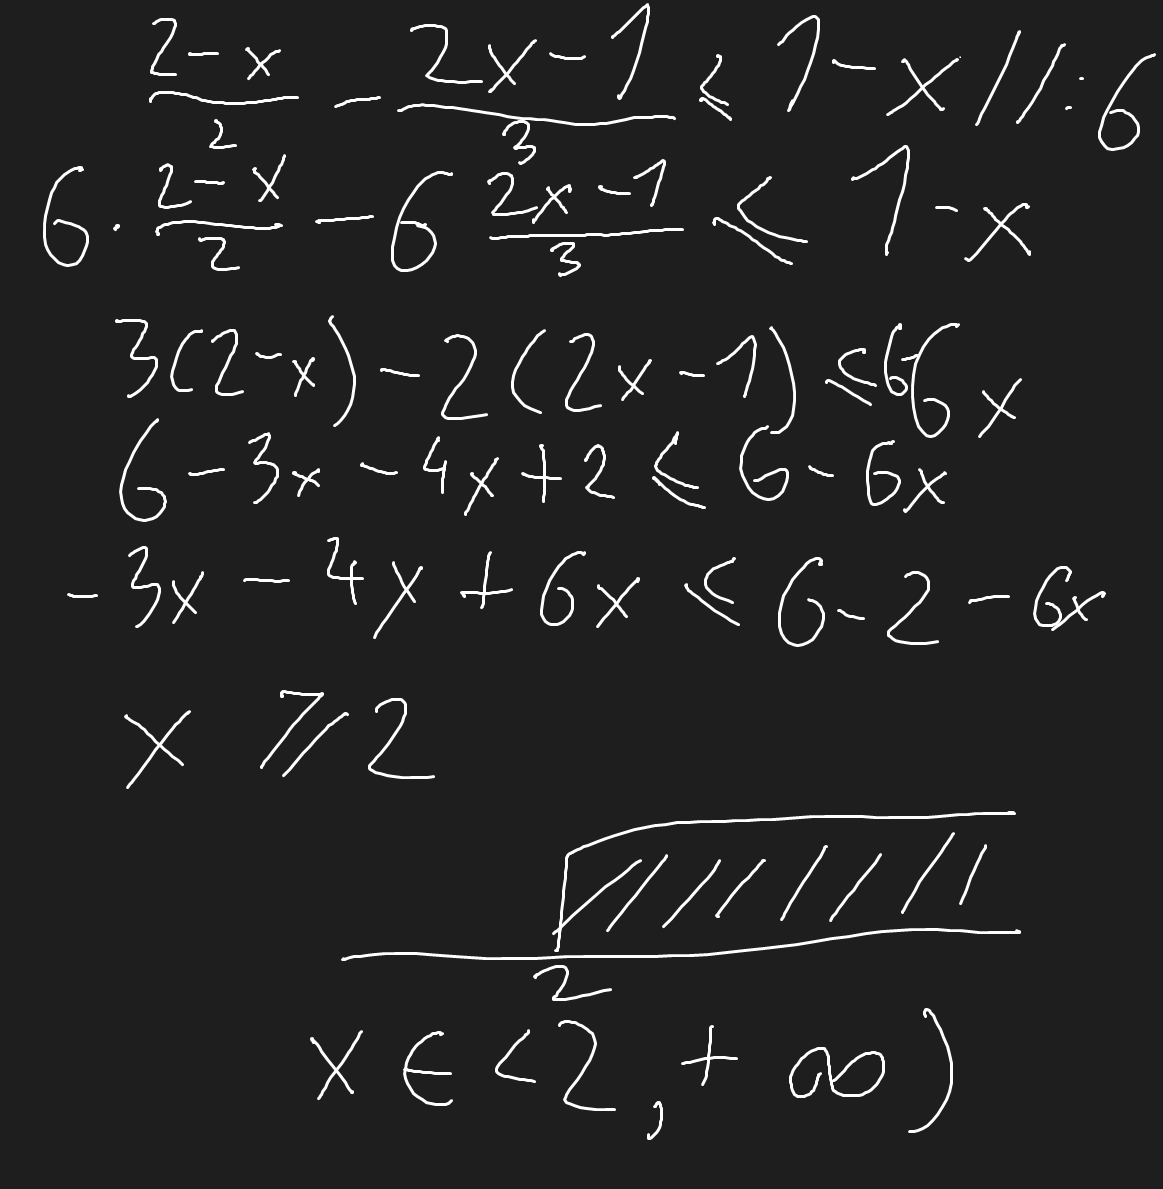 (2-x)/2 - (2x-1)/3 ≤ 1-x //:6
6·(2-x)/2 - 6 (2x-1)/3 ≤ 1-x
3(2-x)-2(2x-1) ≤ 6-6x
6-3x-4x+2 ≤ 6-6x
-3x-4x+6x ≤ 6-2-6x
x ≥ 2
2
x ∈ <2,+∞)